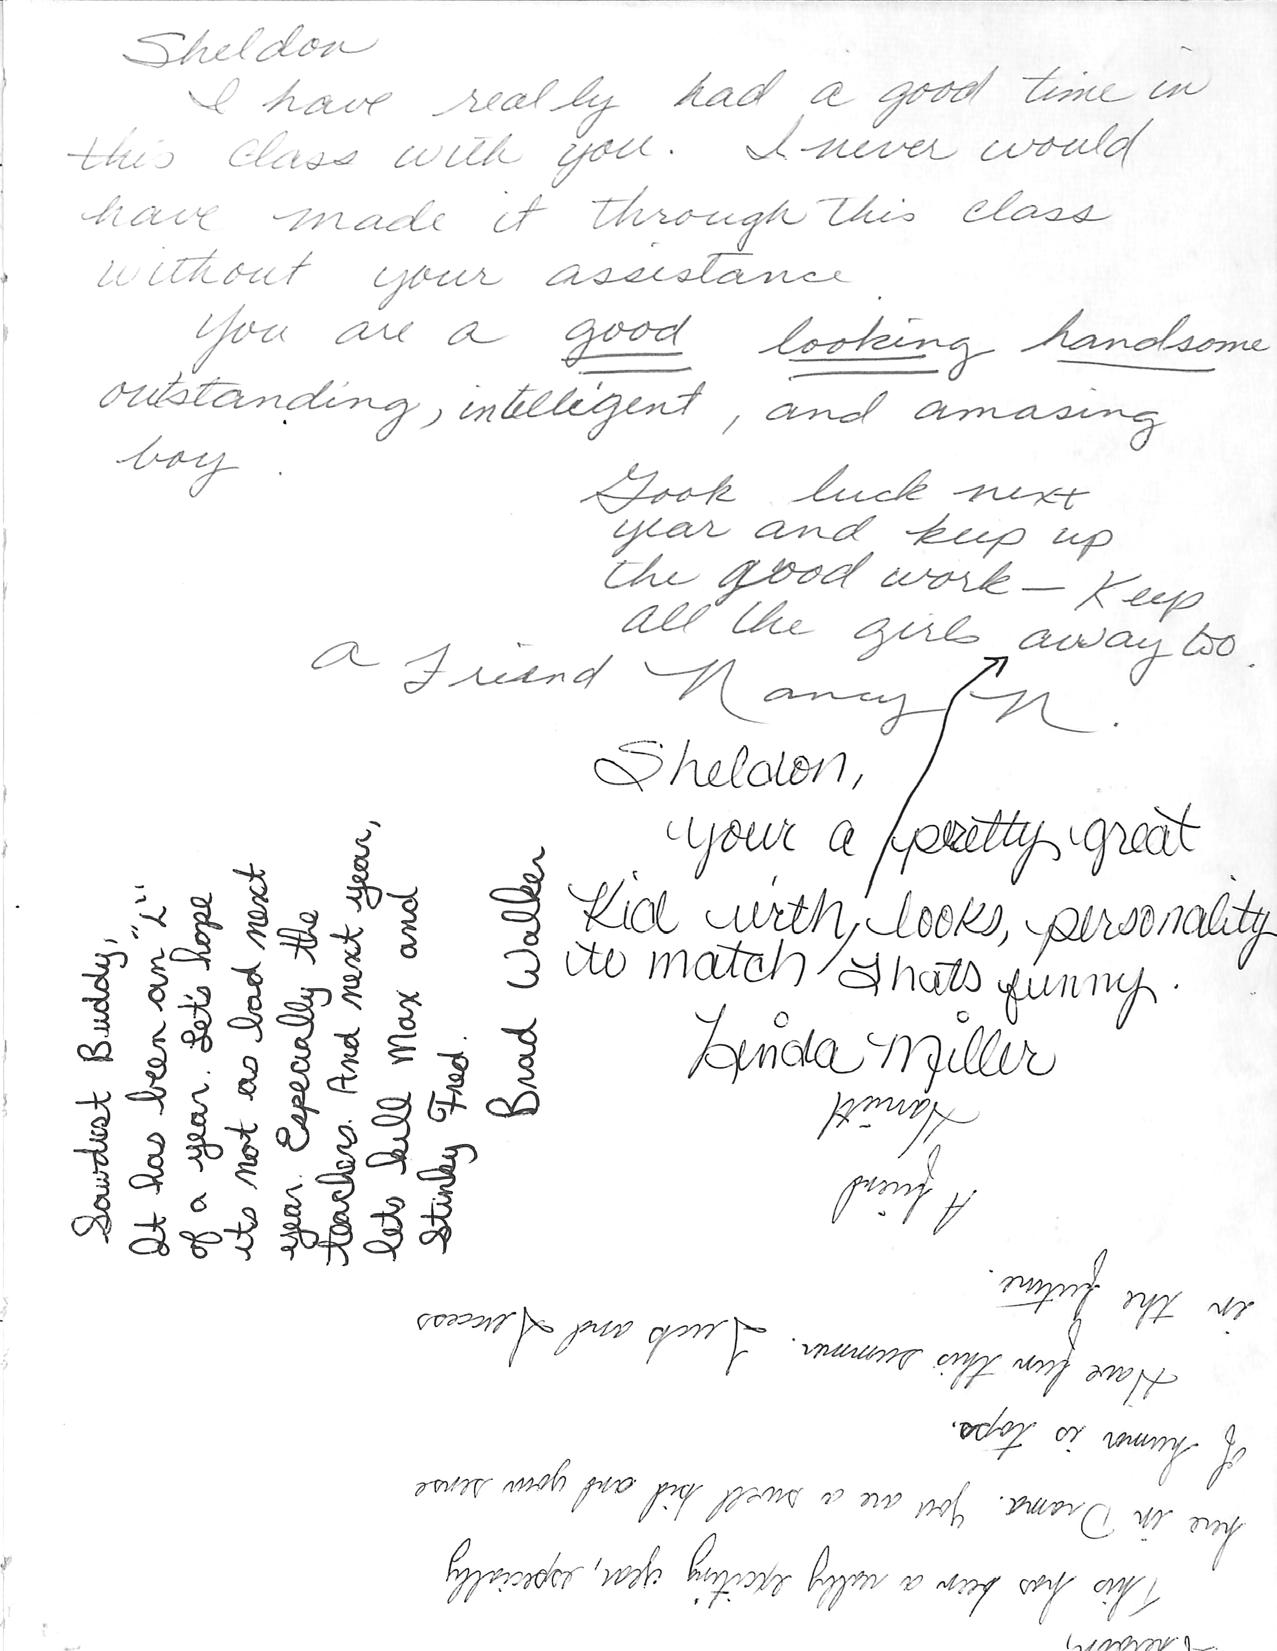 Sheldon
I have really had a good time in
this class with you. I never would
have made it through this class
without your assistance
You are a good looking handsome
outstanding, intelligent, and amasing
boy.
Gook luck next
year and keep up
the good work — Keep
all the girls away too.
a Friend Nancy N.
Sheldon,
your a pretty great
Kid with looks, personality
to match thats funny.
Linda Miller
Sawdist Buddy,
It has been an "L"
of a year. Let's hope
its not as bad next
year. Especially the
teachers. And next year,
lets kill Max and
Stinky Fred.
Brad Walker
This has been a really exciting year, especially
here in Drama. You are a swell kid and your sense
of humor is tops.
Have fun this summer. Luck and Success
in the future.
A friend